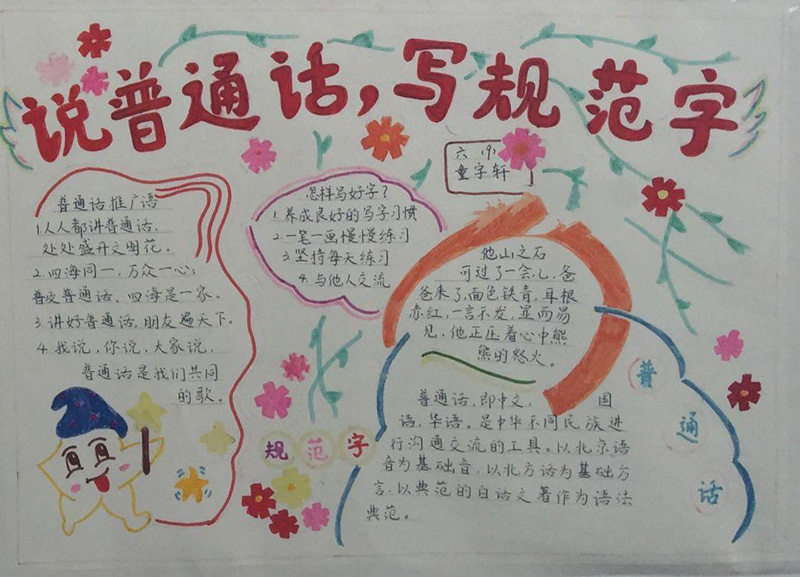 说普通话,写规范字
六(9)
童字轩
普通话推广语
1.人人都讲普通话,
处处盛开文明花。
2.四海同一,万众一心;
普及普通话,四海是一家。
3.讲好普通话,朋友遍天下。
4.我说,你说,大家说,
普通话是我们共同
的歌。
怎样写好字?
1.养成良好的写字习惯
2.一笔一画慢慢练习
3.坚持每天练习
4.与他人交流
他山之石
可过了一会儿,爸
爸来了,面色铁青,耳根
赤红,一言不发,显而易
见,他正压着心中熊
熊的怒火。
规范字
普通话
普通话,即中文,国
语,华语。是中华不同民族进
行沟通交流的工具。以北京语
音为基础音,以北方话为基础方
言,以典范的白话文著作为语法
典范。